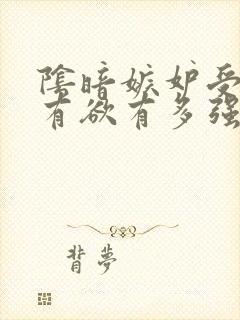 陰暗嫉妒受
有欲有多强
背夢